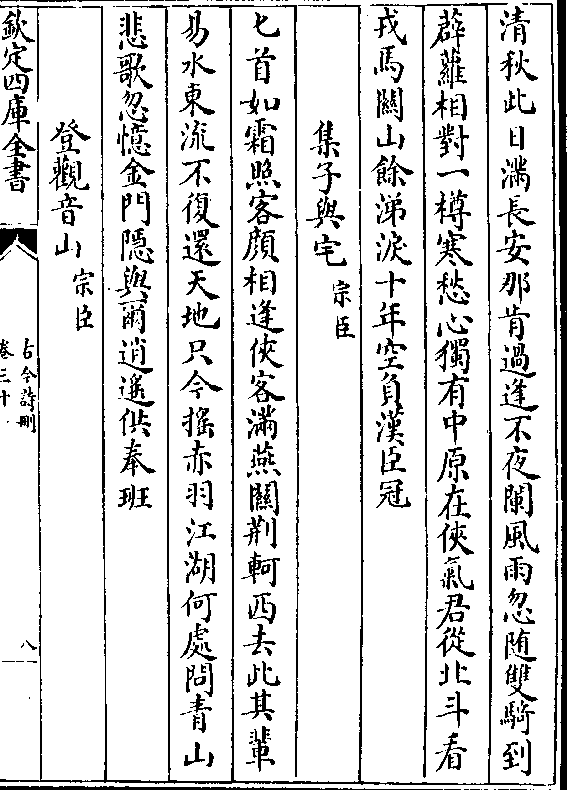 清秋此日滿長安那肯過逢不夜闌風雨忽隨雙騎到
薜蘿相對一樽寒愁心獨有中原在俠氣君從北斗看
戎馬關山餘涕淚十年空負漢臣冠
集子與宅 宗臣
匕首如霜照客顔相逢俠客滿燕關荆軻西去此其輩
易水東流不復還天地只今揺赤羽江湖何處問青山
悲歌忽憶金門隠與爾逍遥供奉班
登觀音山 宗臣
欽定四庫全書
古今詩刪
卷三十
八